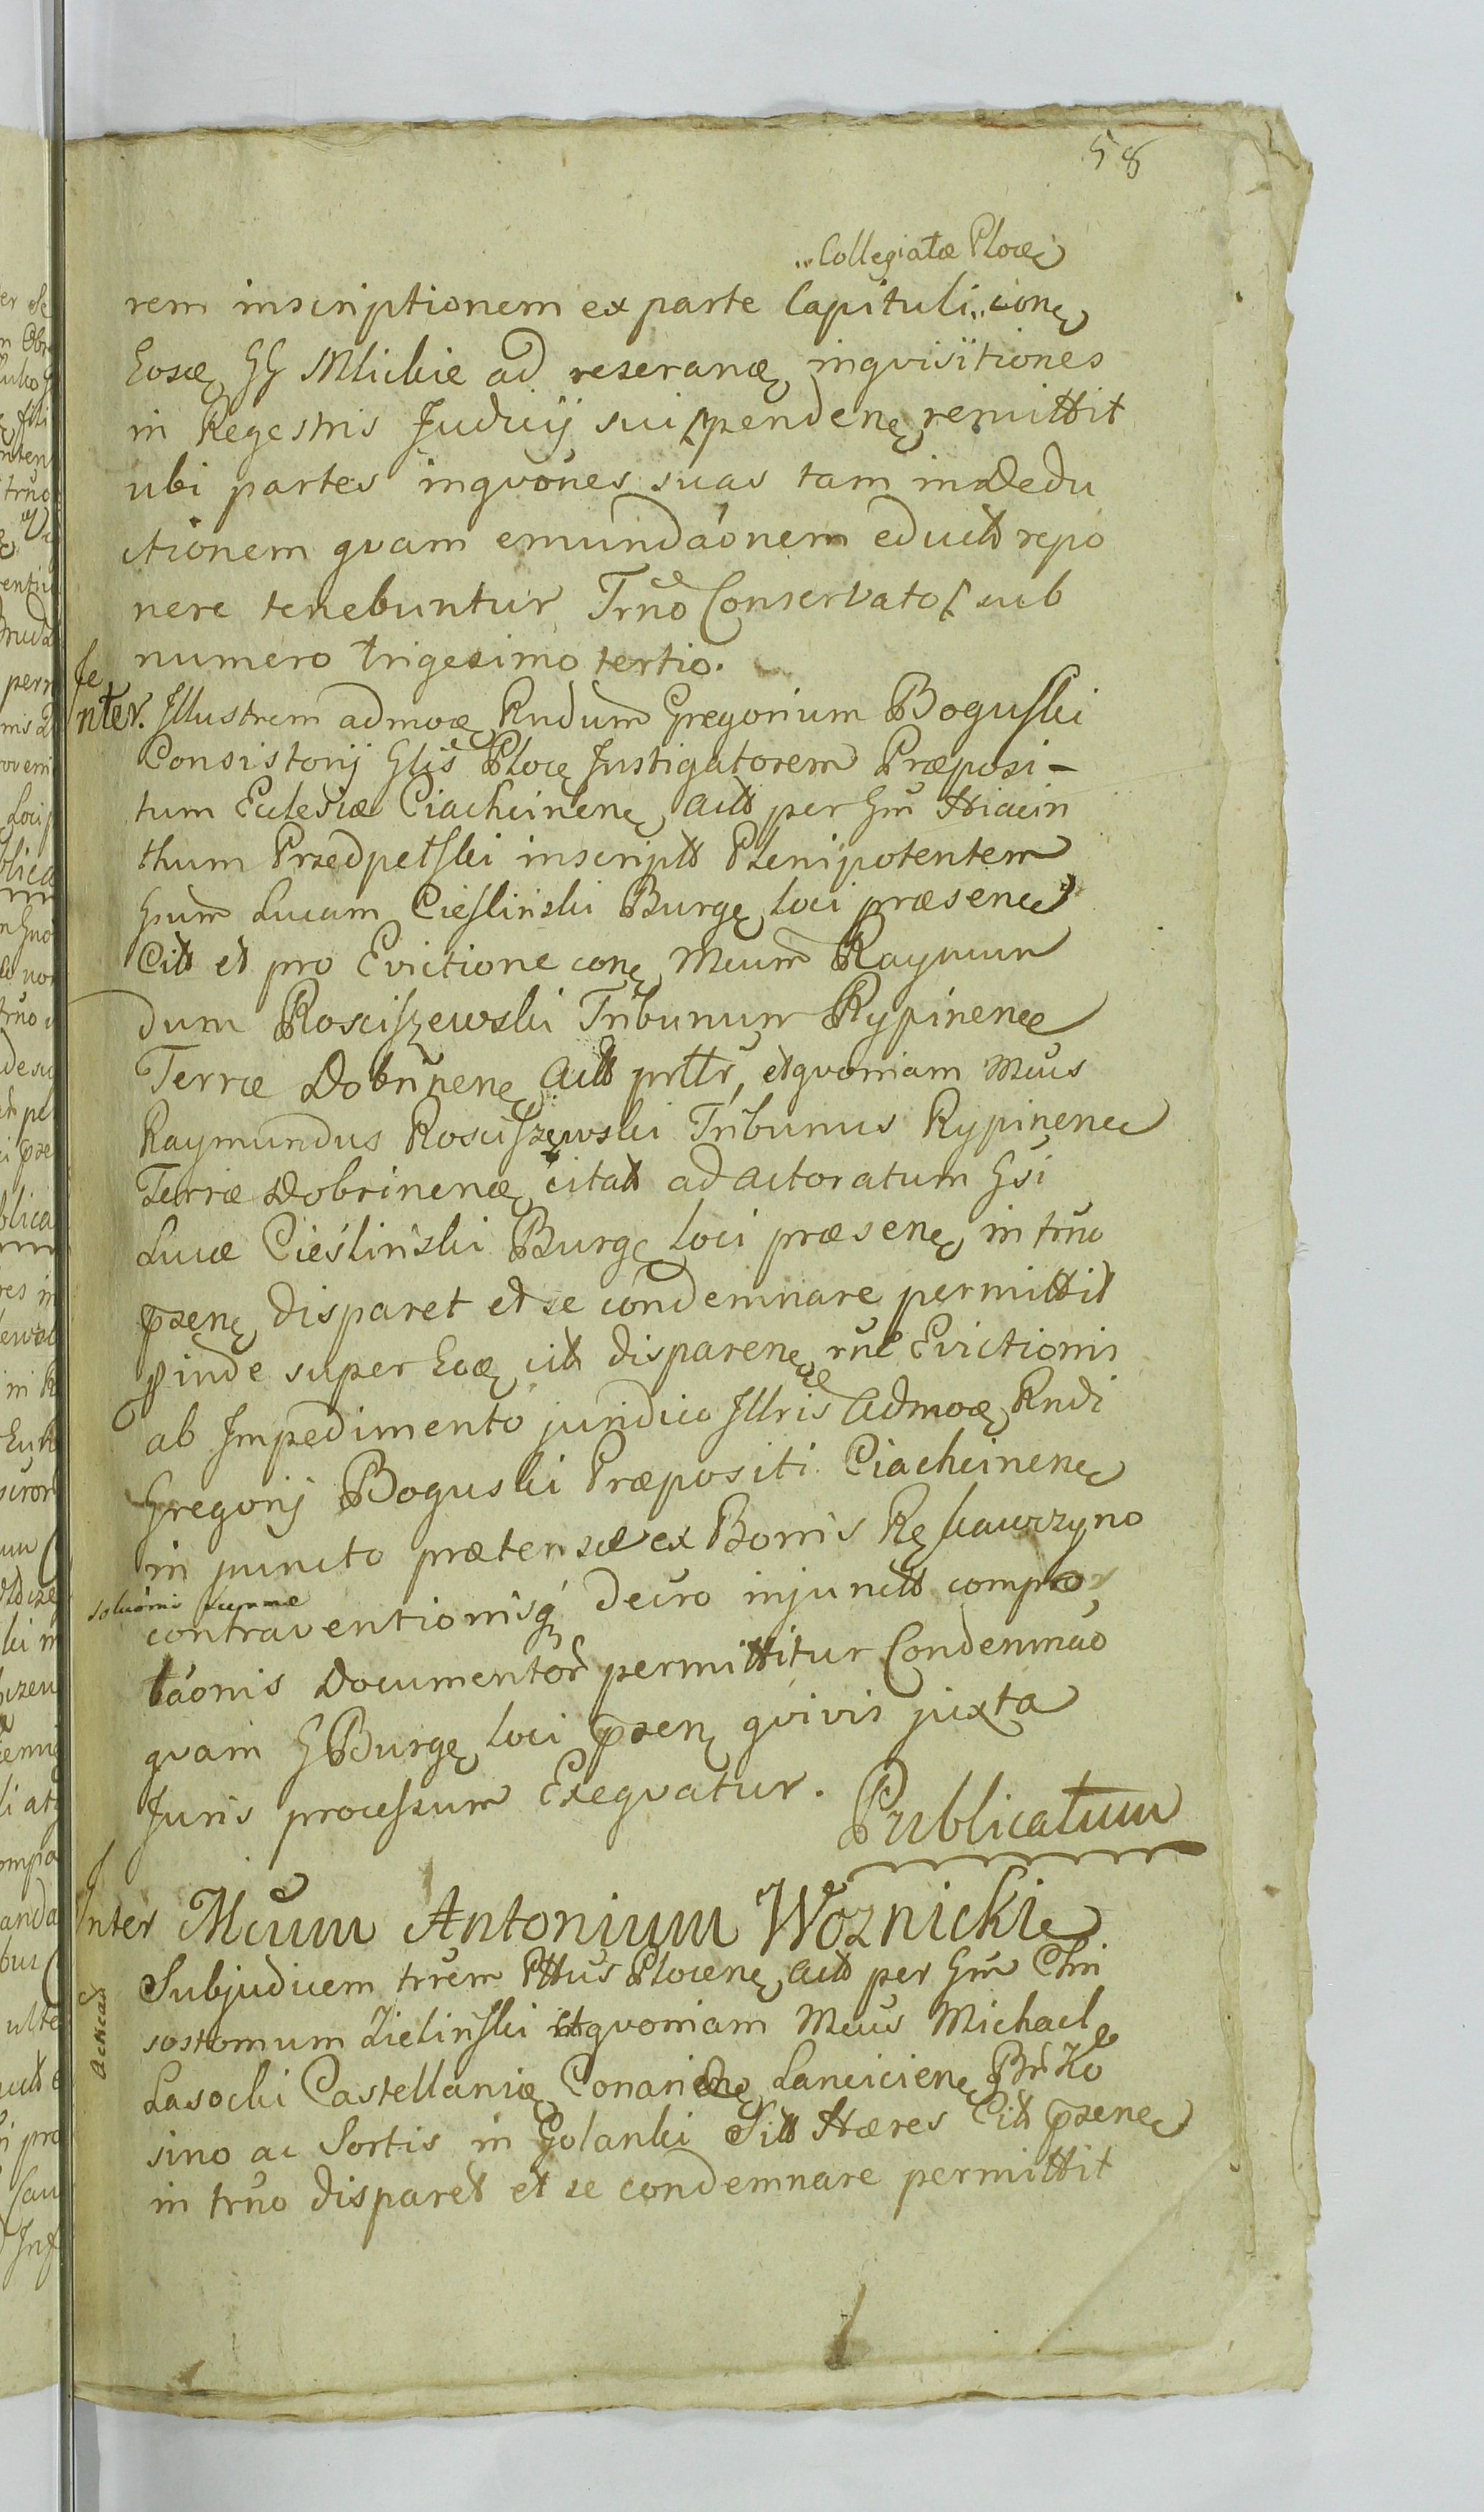 58
Collegiatæ Ploceń
rem inscriptionem ex parte Capituli conę
Eosdę GG Mlickie ad reseranę inqvisitiones
in Regestris Judicij sui pendenę remittit
ubi partes inqvönes suas tam in Dedu
ctionem qvam emundãonem eductt repo
nere tenebuntur Trñô Conservato sub
numero trigesimo tertio.
Inter Illustrem admoę Rndum Gregorium Boguski
Consistorij Glis Plocę Instigatorem Præposi-
tum Eclesiæ Ciachcinenę Actt per Gm Hiacin
thum Przedpełski inscriptt Plenipotentem
Gsum Lucam Cieslinski Burgę loci præsenę
Citt et pro Evictione conę Mcum Raymun
dum Rosciszewski Tribunum Rypinenę
Terræ Dobrinenę Actt prttr, et qvoniam Mcus
Raymundus Rosciszewski Tribunus Rypinenę
Terræ Dobrinenę citatt ad actoratum Gsi
Lucæ Cieślinski Burgę loci præsenę in trño
præsenę disparet et se condemnare permittit
proinde super Eoę citt disparenę rñe Evictionis
ab Impedimento juridico Illris Admoę Rndi
Gregorij Boguski Præpositi Ciachcinenę
in puncto prætensæ ex Bonis Rękawczyno
solucionis summæ
contraventionisq Decro injunctt compor
tãonis Documentor permittitur Condemnaõ
qvam G Burgę loci præsenę qvivis juxta
Juris processum Exeqvatur.
Publicatum
Inter Mcum Antonium Woznickie
Subjudicem trrem Pttus Plocenę Actt per Gm Chri
sostomum Zielinski et qvoniam Mcus Michael
Acticat
Lasocki Castellanię Conarienę Lancicienę Br Ko
sino ac Sortis in Golanki Sitt Hæres Citt præsenę
in trño disparet et se condemnare permittit